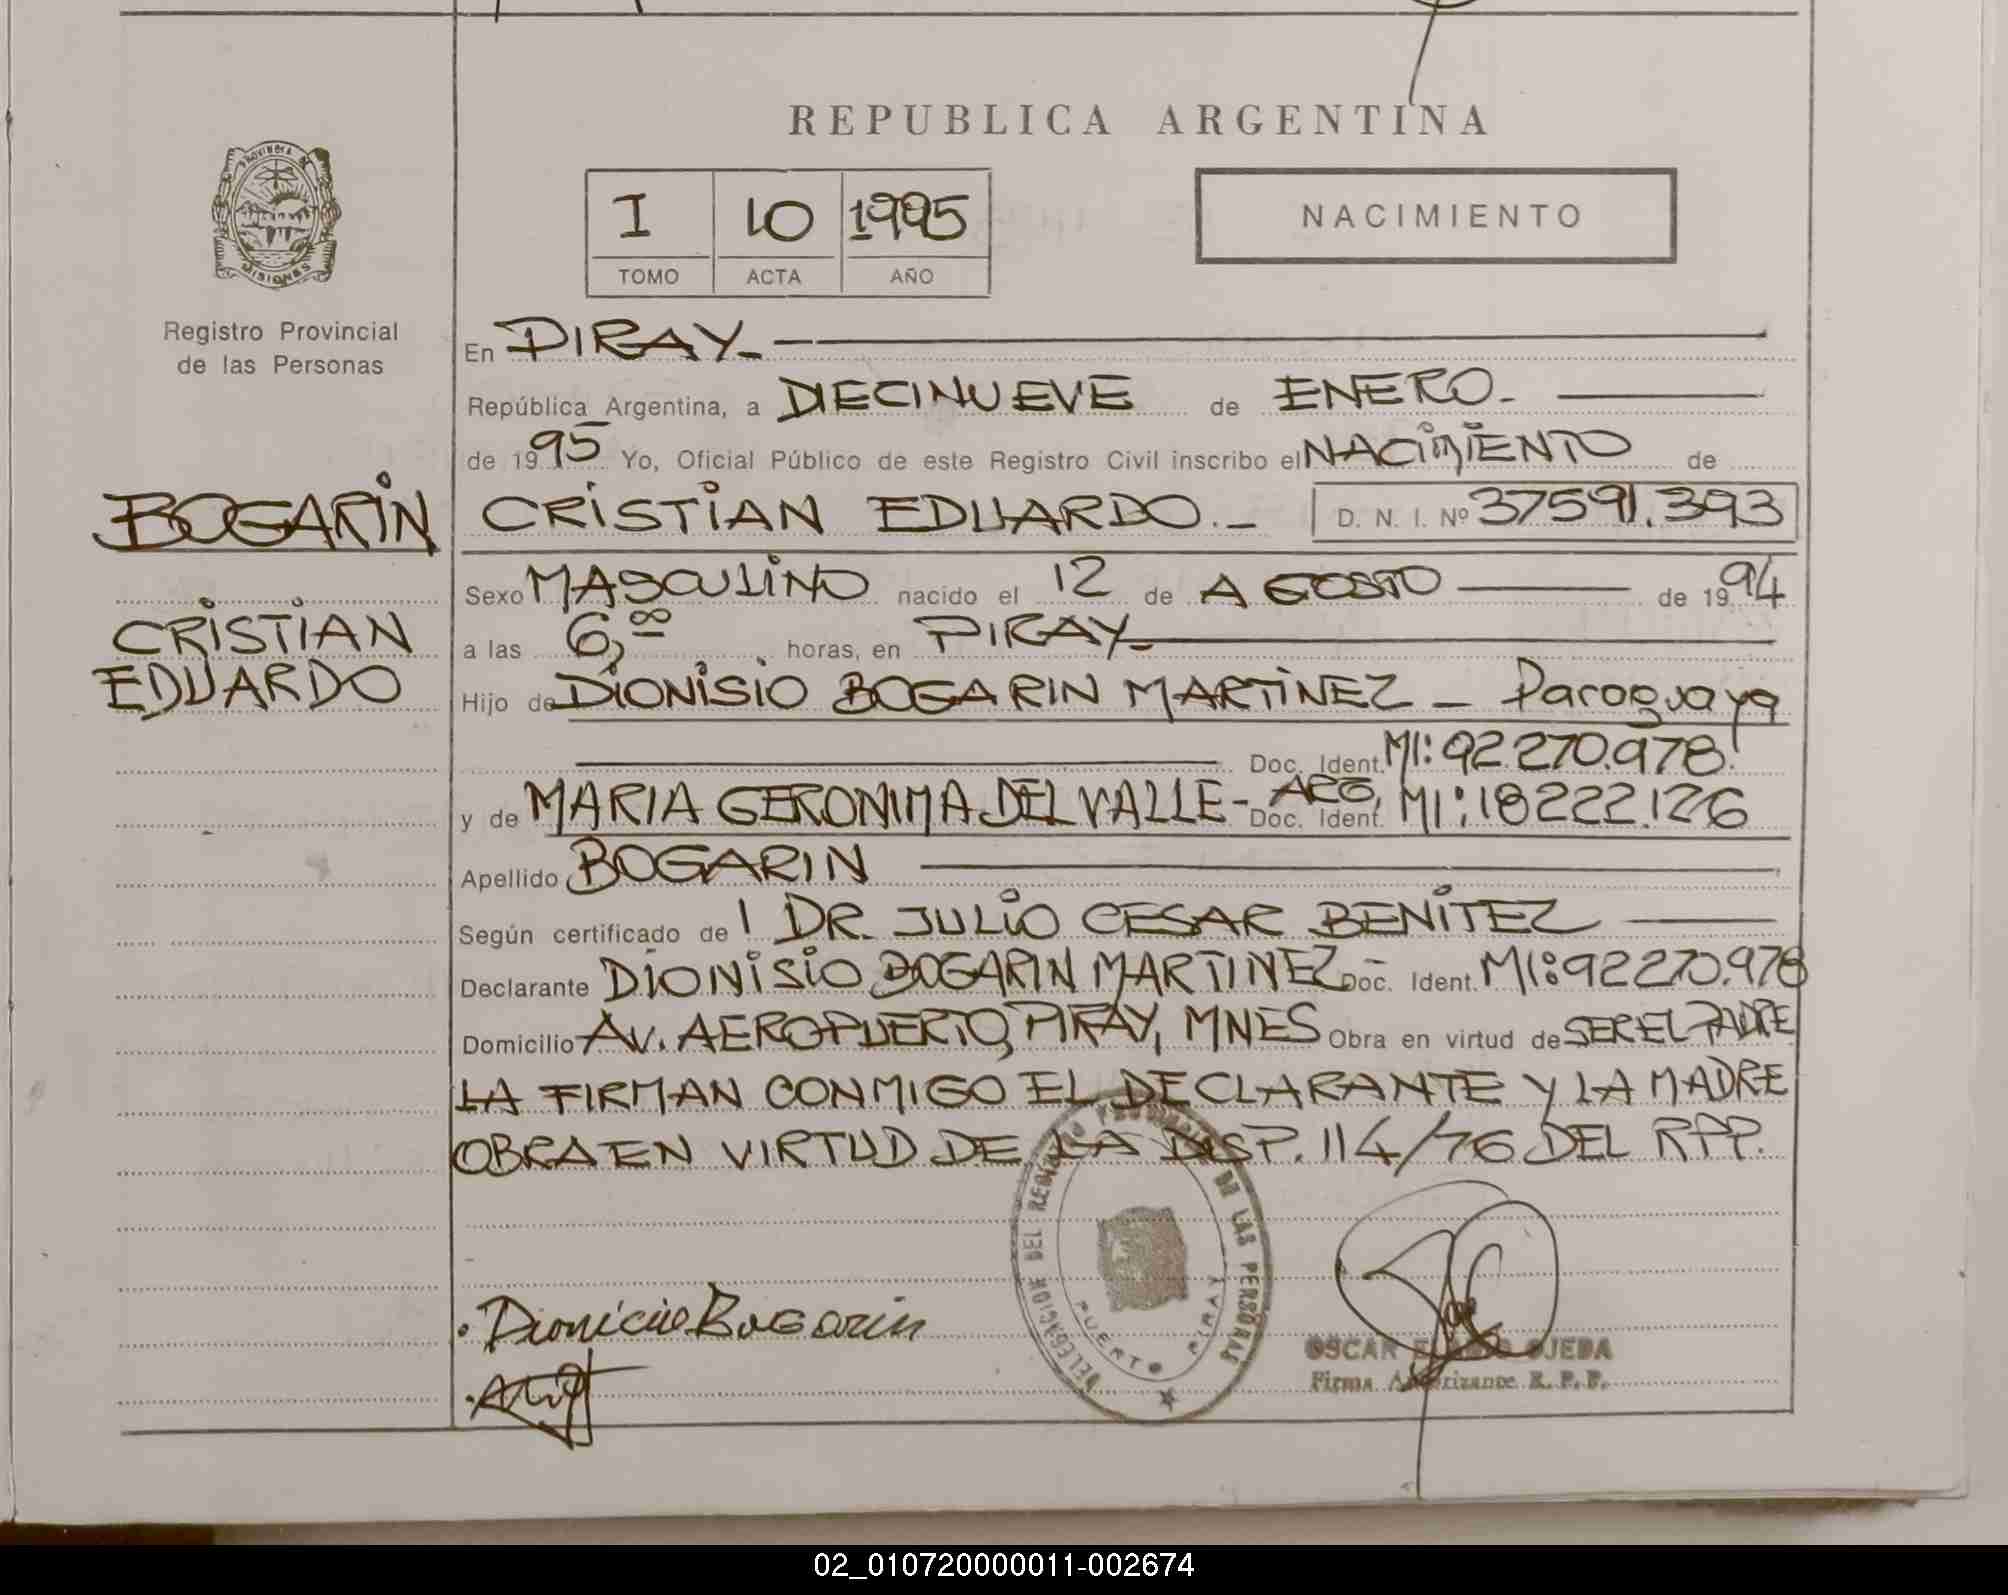 REPUBLICA ARGENTINA
PROVINCIA DE
MISIONES
Registro Provincial
de las Personas
I 10 1995
TOMO ACTA AÑO
NACIMIENTO
En PIRAY.
República Argentina, a DIECINUEVE de ENERO.
de 1995 Yo, Oficial Público de este Registro Civil inscribo el NACIMIENTO de
BOGARIN
CRISTIAN EDUARDO.- D. N. I. Nº 37591.393
CRISTIAN
EDUARDO
Sexo MASCULINO nacido el 12 de AGOSTO de 1994
a las 6,00 horas, en PIRAY.
Hijo de DIONISIO BOGARIN MARTINEZ - Paraguaya
Doc. Ident. MI: 92.270.978
y de MARIA GERONIMA DEL VALLE - ARG, Doc. Ident. MI: 18222.126
Apellido BOGARIN
Según certificado de l DR. JULIO CESAR BENITEZ
Declarante DIONISIO BOGARIN MARTINEZ Doc. Ident. MI: 92270.978
Domicilio AV. AEROPUERTO, PIRAY, MNES Obra en virtud de SER EL PADRE
LA FIRMAN CONMIGO EL DECLARANTE Y LA MADRE
OBRA EN VIRTUD DE LA DISP. 114/76 DEL RPP.
DELEGACION DEL REGISTRO PROVINCIAL DE LAS PERSONAS
PUERTO PIRAY
Dionicio Bogarin
OSCAR OJEDA
Firma Autorizante R. P. P.
02_010720000011-002674